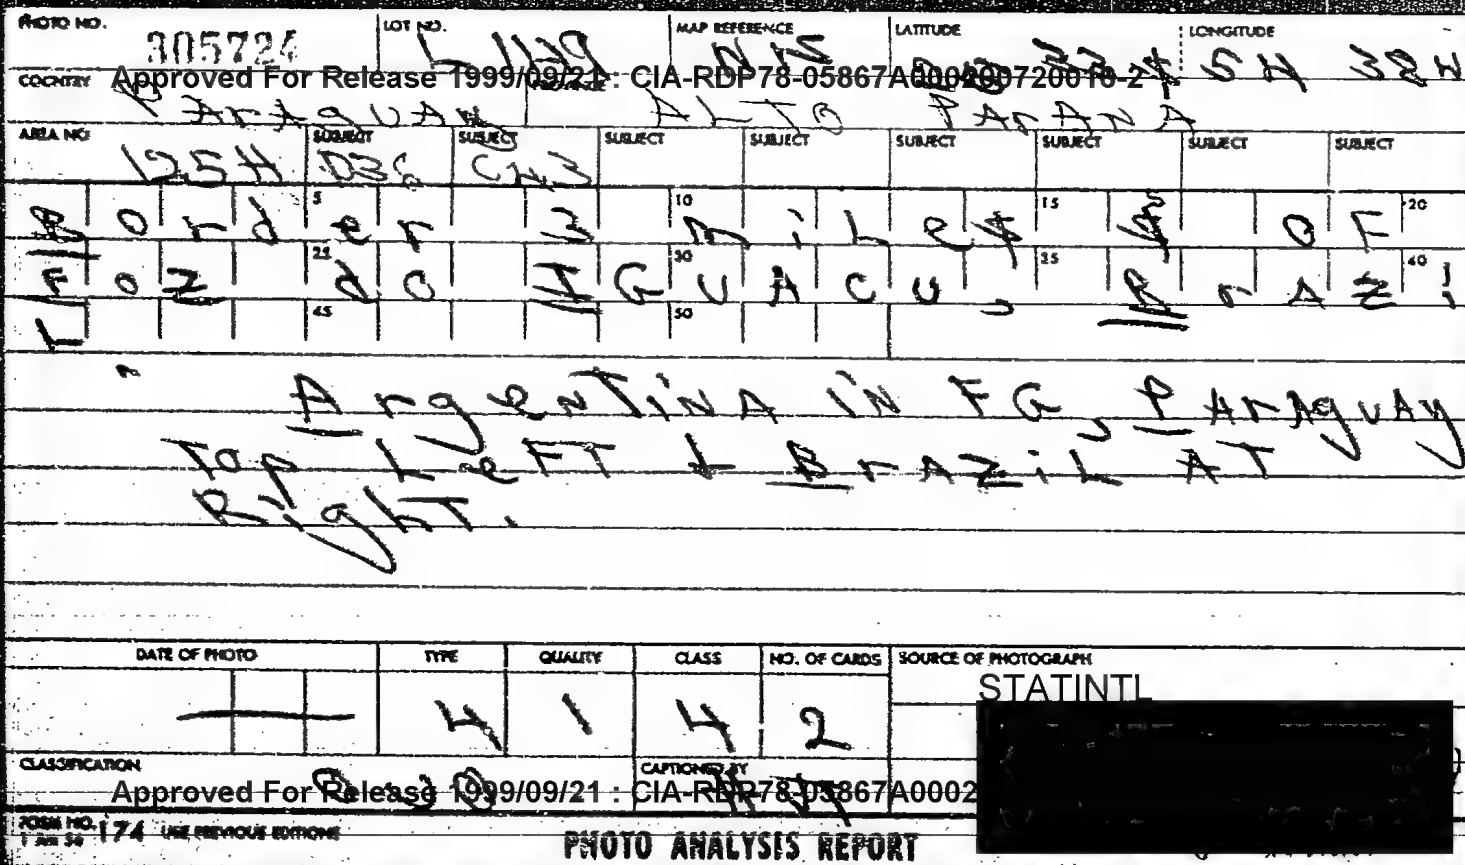 PHOTO NO. 305724 LOT NO. MAP REFERENCE LATITUDE LONGITUDE 54 38 W
COUNTRY Approved For Release 1999/09/21 : CIA-RDP78-05867A000200720010-2
Paraguay ALTO PArANA
AREA NO. 125H SUBJECT SUBJECT CH3 SUBJECT SUBJECT SUBJECT SUBJECT SUBJECT SUBJECT
5 10 15 20
Border 3 miles S OF
25 30 35 40
Foz do IGUACU, BrAzi
45 50
L
ArgenTiNA iN FG, PArAguAy
Top LeFT & BrAziL AT
RighT.
DATE OF PHOTO TYPE QUALITY CLASS NO. OF CARDS SOURCE OF PHOTOGRAPH
STATINTL
4 1 4 2
CLASSIFICATION CAPTIONED BY
Approved For Release 1999/09/21 : CIA-RDP78-05867A0002
FORM NO. 174 USE PREVIOUS EDITIONS
PHOTO ANALYSIS REPORT